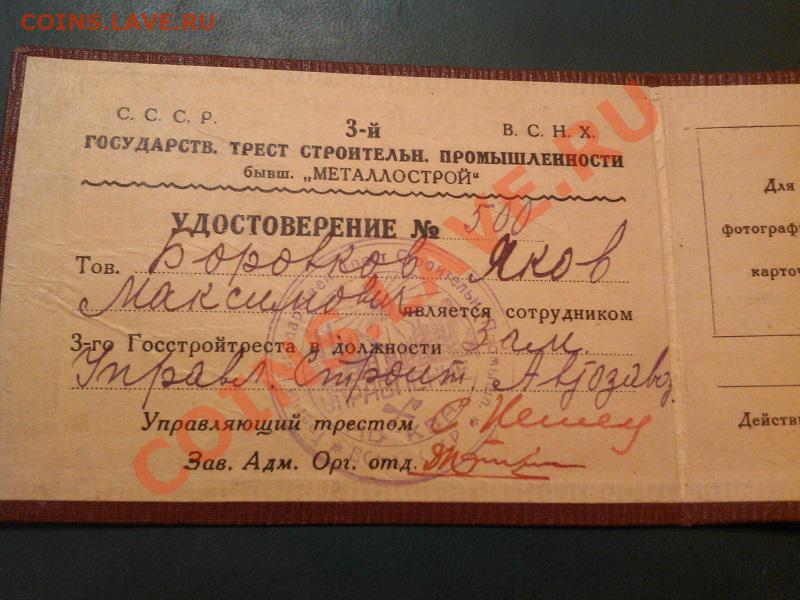 COINS.LAVE.RU
С. С. С. Р.
3-й
В. С. Н. Х.
ГОСУДАРСТВ. ТРЕСТ СТРОИТЕЛЬН. ПРОМЫШЛЕННОСТИ
бывш. „МЕТАЛЛОСТРОЙ“
УДОСТОВЕРЕНИЕ № 500
Тов. Боровков Яков
Максимович является сотрудником
3-го Госстройтреста в должности Зам
Управл. Строит. Автозавод
Управляющий трестом
Зав. Адм. Орг. отд.
Для
фотограф
карточ
Действи
COINS.LAVE.RU